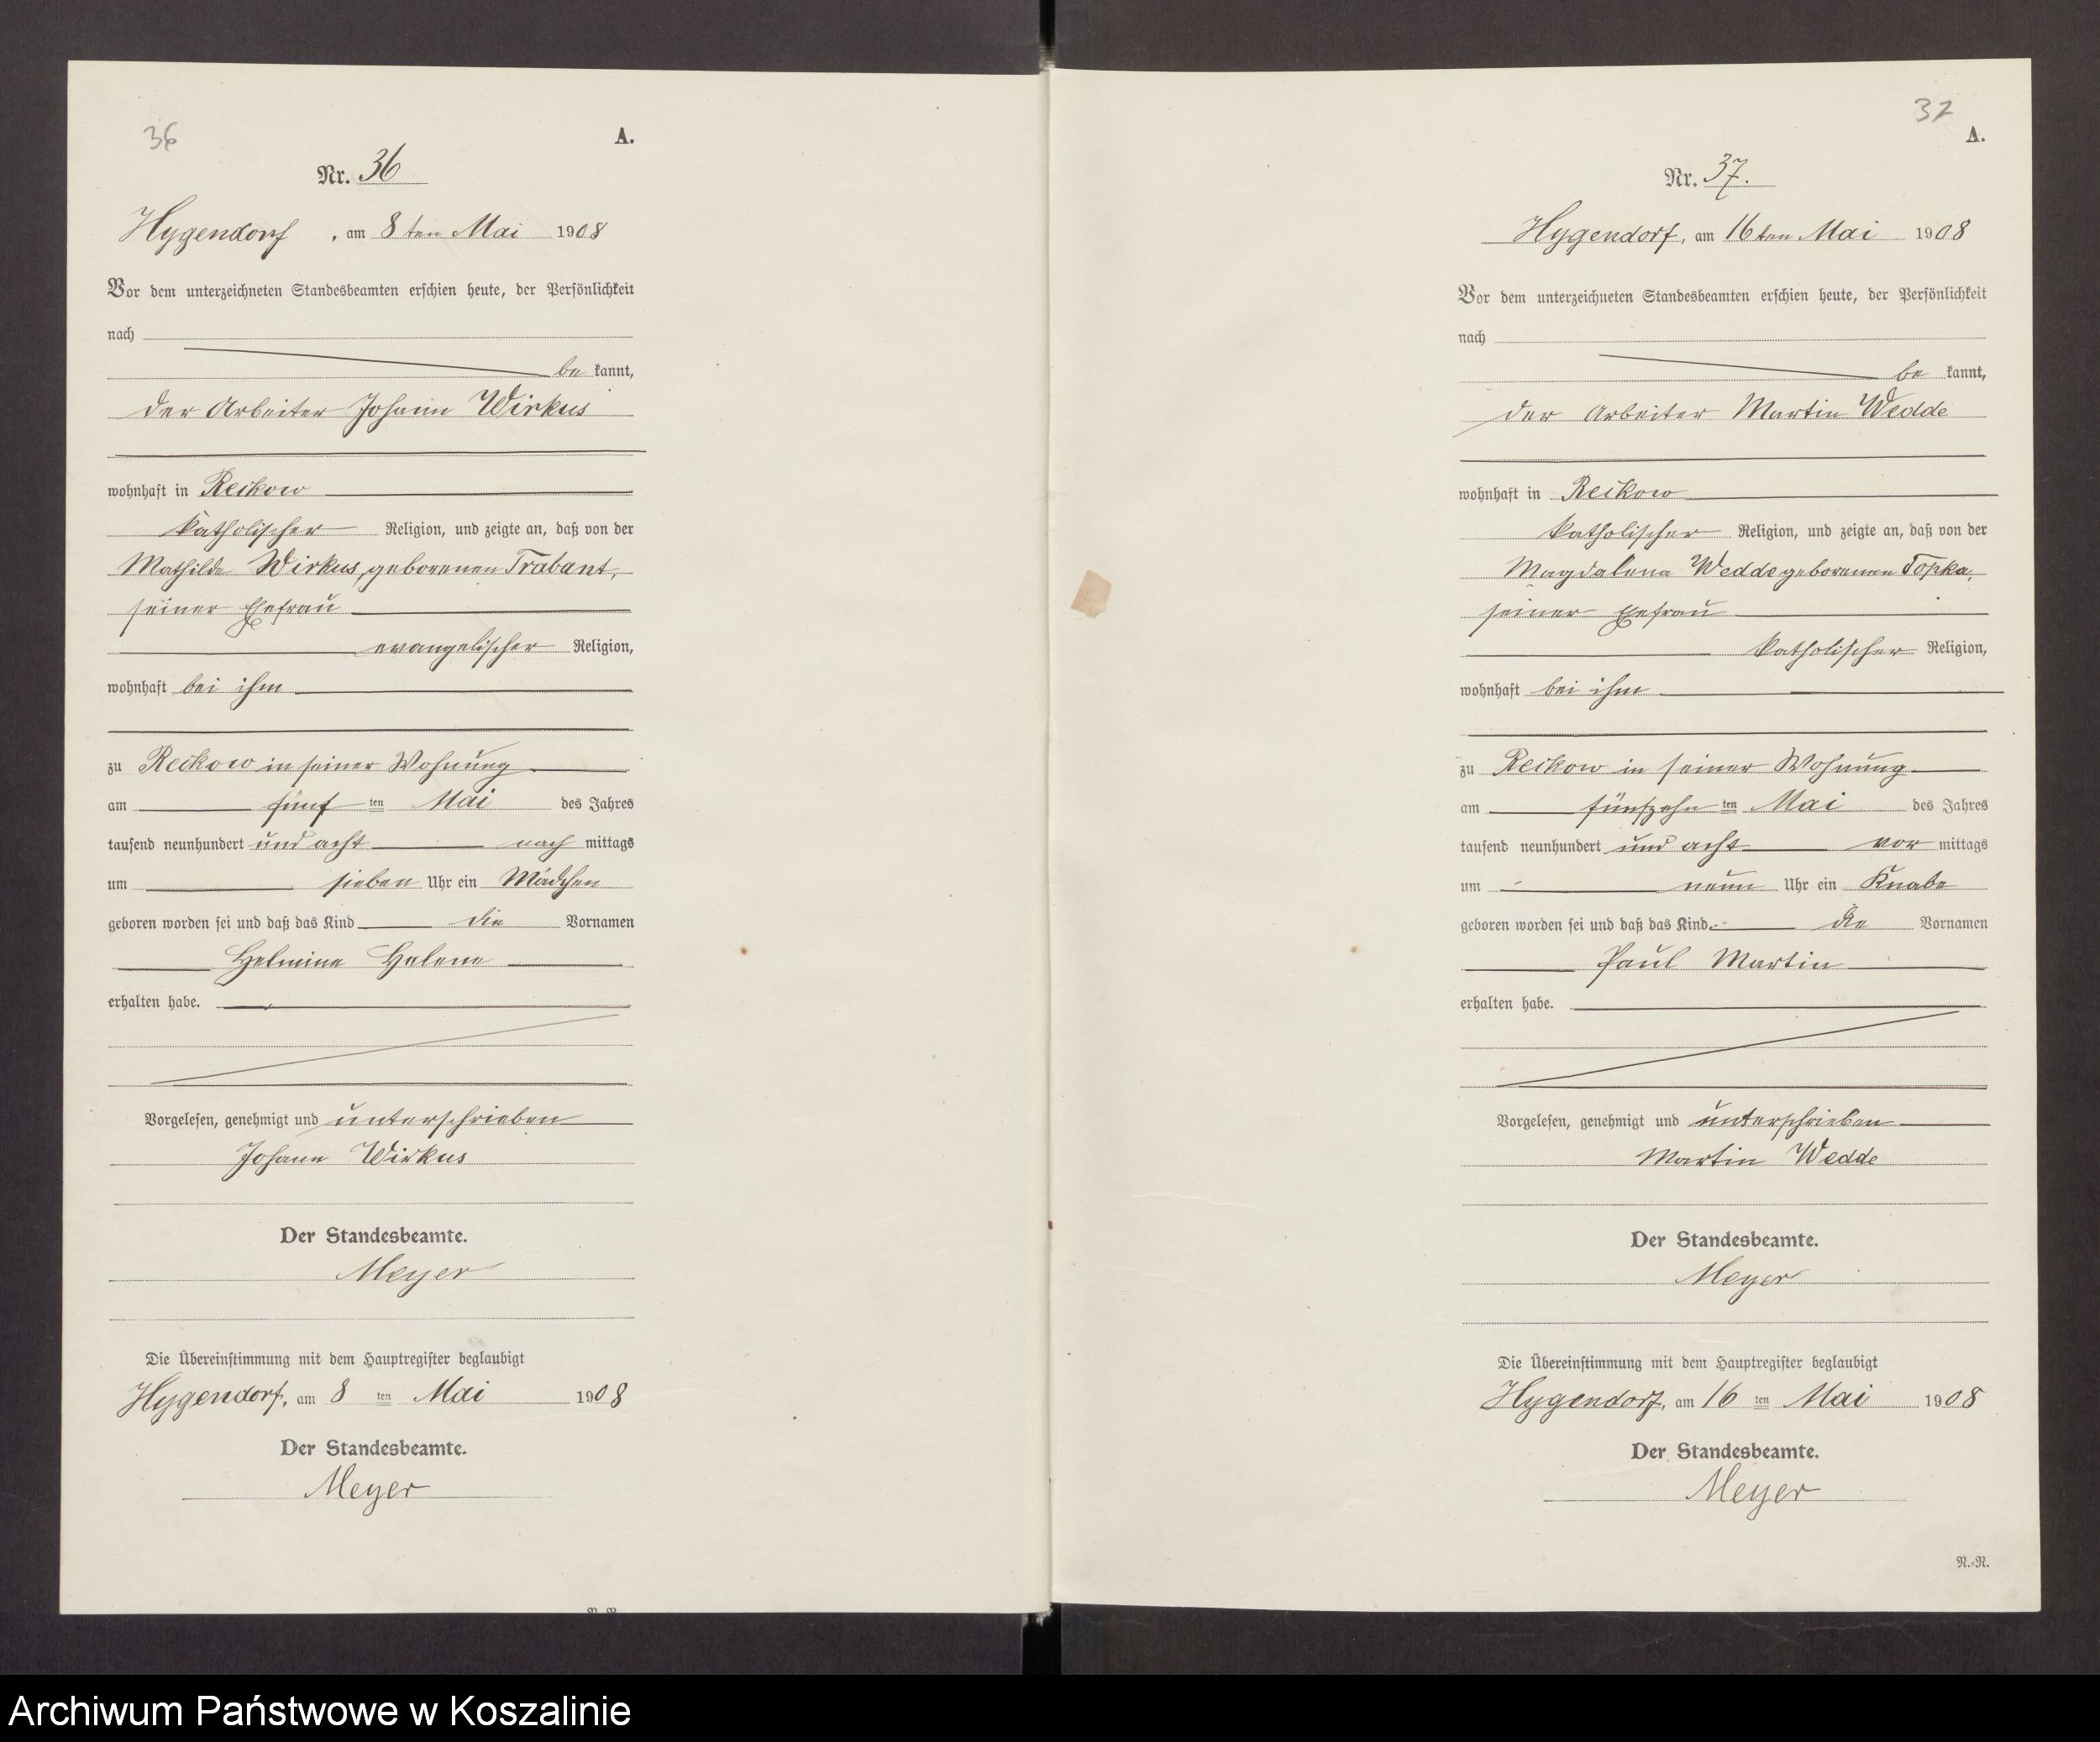 36
A.
Nr. 36
Hygendorf, am 8ten Mai 1908
Vor dem unterzeichneten Standesbeamten erschien heute, der Persönlichkeit
nach
be kannt,
der Arbeiter Johann Wirkus
wohnhaft in Reckow
katholischer Religion, und zeigte an, daß von der
Mathilde Wirkus, geborenen Trabant,
seiner Ehefrau
evangelischer Religion,
wohnhaft bei ihm
zu Reckow in seiner Wohnung
am fünf ten Mai des Jahres
tausend neunhundert und acht nach mittags
um sieben Uhr ein Mädchen
geboren worden sei und daß das Kind die Vornamen
Helmine Helene
erhalten habe.
Vorgelesen, genehmigt und unterschrieben
Johann Wirkus
Der Standesbeamte.
Meyer
Die Übereinstimmung mit dem Hauptregister beglaubigt
Hygendorf, am 8 ten Mai 1908
Der Standesbeamte.
Meyer
37
A.
Nr. 37.
Hygendorf, am 16ten Mai 1908
Vor dem unterzeichneten Standesbeamten erschien heute, der Persönlichkeit
nach
be kannt,
der Arbeiter Martin Wedde
wohnhaft in Reckow
katholischer Religion, und zeigte an, daß von der
Magdalena Wedde geborenen Topka,
seiner Ehefrau
katholischer Religion,
wohnhaft bei ihm
zu Reckow in seiner Wohnung
am fünfzehn ten Mai des Jahres
tausend neunhundert und acht vor mittags
um neun Uhr ein Knabe
geboren worden sei und daß das Kind die Vornamen
Paul Martin
erhalten habe.
Vorgelesen, genehmigt und unterschrieben
Martin Wedde
Der Standesbeamte.
Meyer
Die Übereinstimmung mit dem Hauptregister beglaubigt
Hygendorf, am 16 ten Mai 1908
Der Standesbeamte.
Meyer
N.-N.
Archiwum Państwowe w Koszalinie